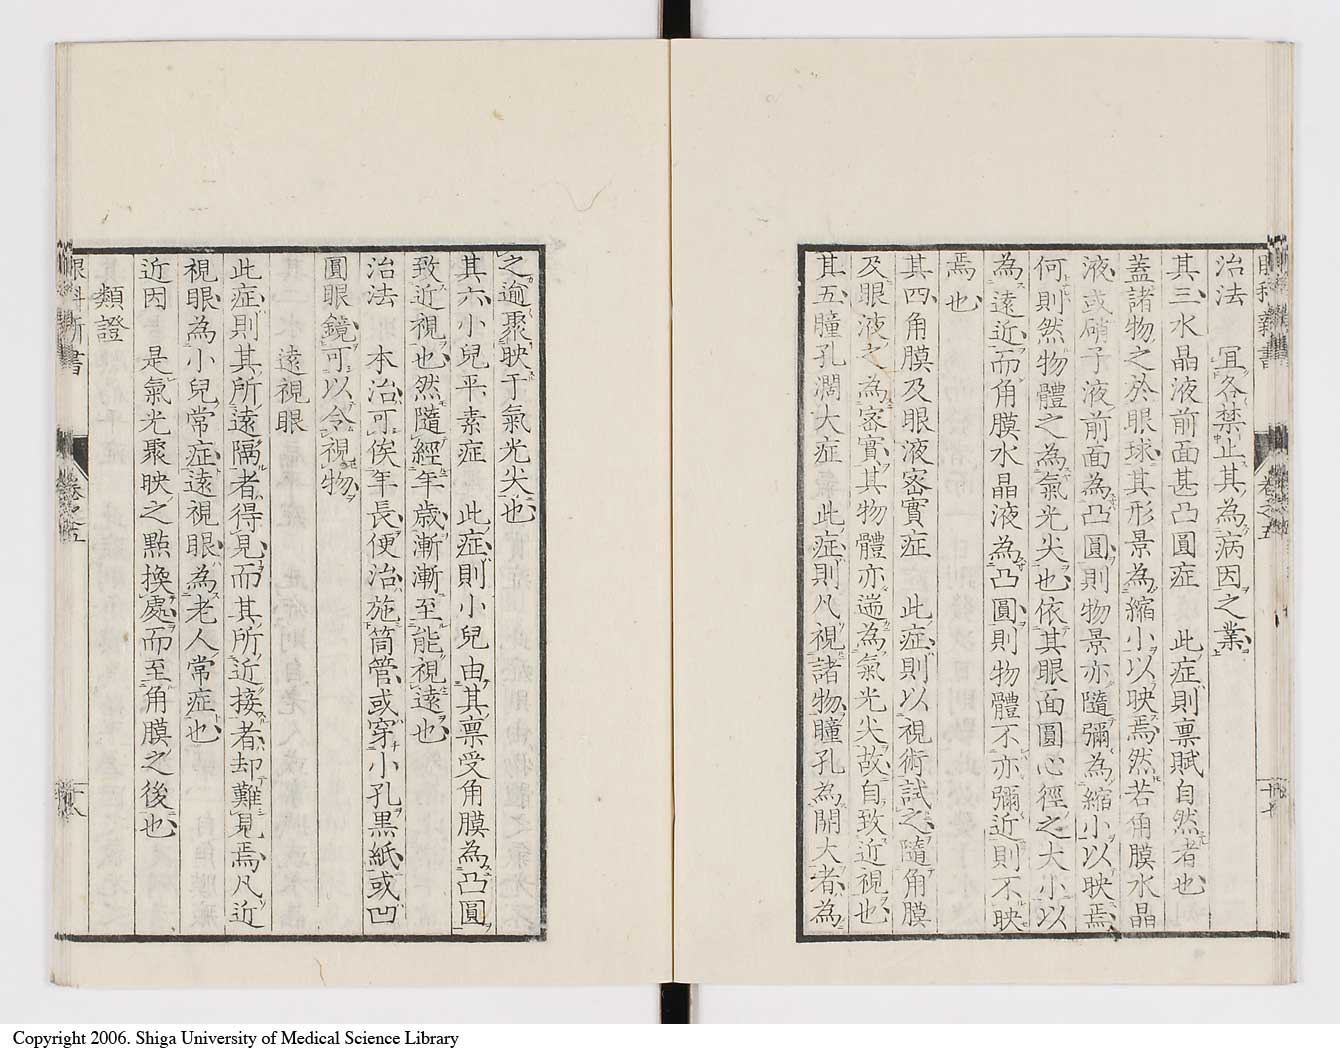 眼科新書 卷之五 十七
治法 宜各禁止其為病因之業
其三水晶液前面甚凸圓症 此症則稟賦自然者也
蓋諸物之於眼球其形景為縮小以映焉然若角膜水晶
液或硝子液前面為凸圓則物景亦隨彌為縮小以映焉
何則然物體之為氣光尖也依其眼面圓心徑之大小以
為遠近而角膜水晶液為凸圓則物體不亦彌近則不映
焉也
其四角膜及眼液密實症 此症則以視術試之隨角膜
及眼液之為密實其物體亦遄為氣光尖故自致近視也
其五瞳孔濶大症 此症則凡視諸物瞳孔為開大者為
之逾聚映于氣光尖也
其六小兒平素症 此症則小兒由其稟受角膜為凸圓
致近視也然隨經年歲漸漸至能視遠也
治法 本治可俟年長便治施筒管或穿小孔黒紙或凹
圓眼鏡可以令視物
遠視眼
此症則其所遠隔者得見而其所近接者却難見焉凡近
視眼為小兒常症遠視眼為老人常症也
近因 是氣光聚映之點換處而至角膜之後也
類證
眼科新書 卷之五 十八
Copyright 2006. Shiga University of Medical Science Library